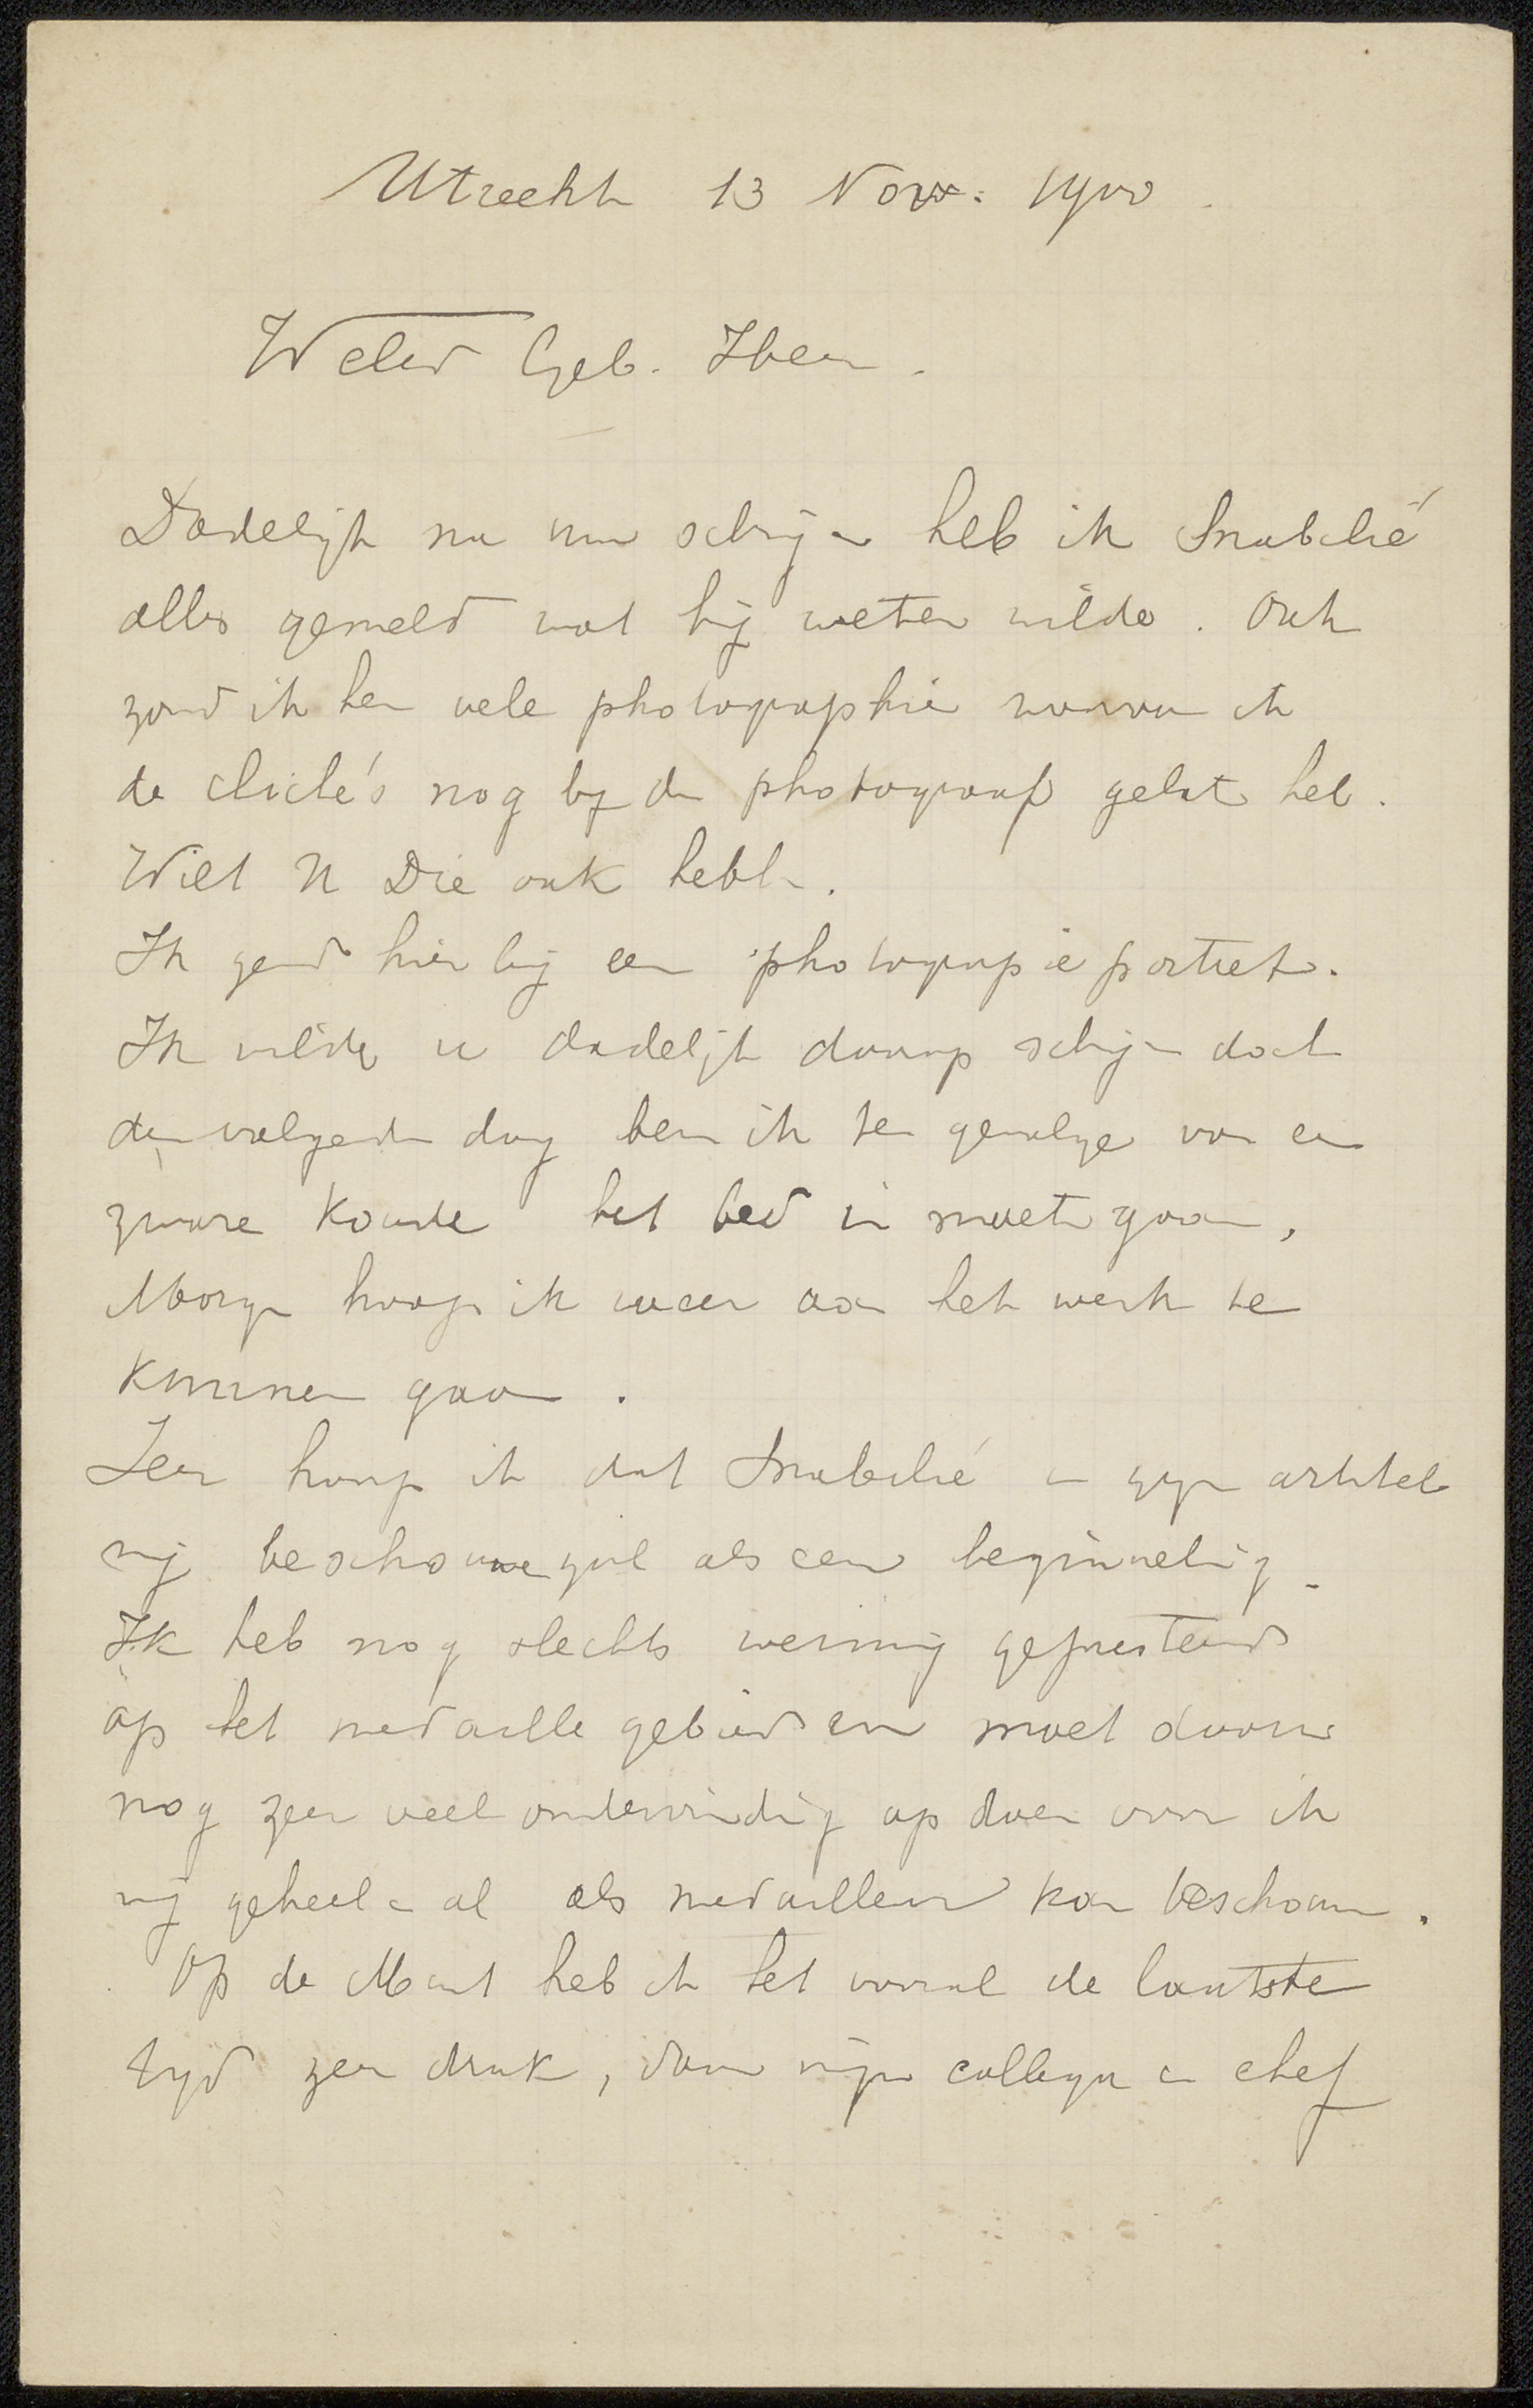 Utrecht 13 Nov: 1900.
WelEd Geb. Heer.
Dadelijk na uw schrijven heb ik Snabilié
alles gemeld wat hij weten wilde. Ook
zond ik hem vele photographien waarvan ik
de cliché's nog bij den photograaf gelast heb.
Wilt U Die ook hebben.
Ik zend hierbij een photograpieportret.
Ik wilde u dadelijk daarop schrijven doch
den volgenden dag ben ik ten gevolge van een
zware koude het bed in moeten gaan,
Morgen hoop ik weer aan het werk te
kunnen gaan.
Zeer hoop ik dat Snabilié in zijn artikel
mij beschouwen zal als een beginneling.
Ik heb nog slechts weinig gepresteerd
op het medaille gebied en moet daarin
nog zeer veel ondervinding op doen voor ik
mij geheel en al als medailleur kan beschouwen.
Op de Munt heb ik het vooral de laatste
tijd zeer druk, daar mijn collega en chef